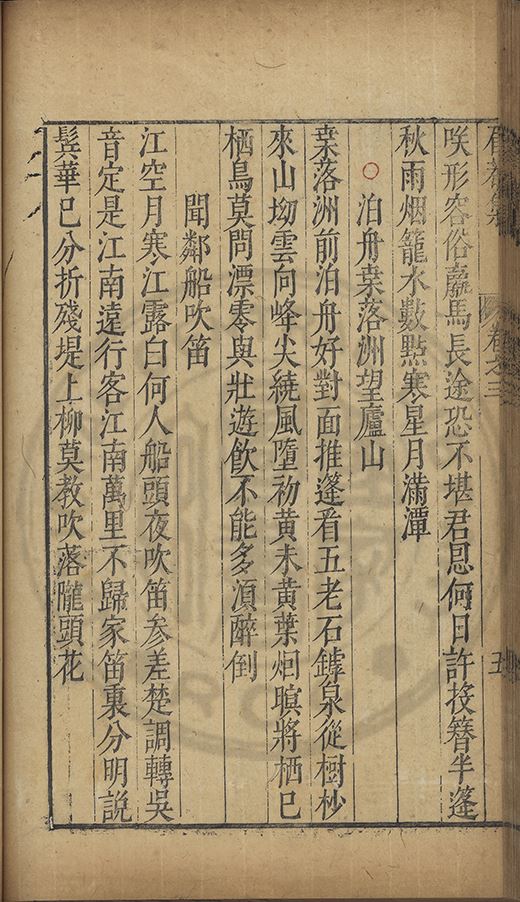 卷之三 五
咲形容俗羸馬長途恐不堪君恩何日許投簪半蓬
秋雨烟籠水數點寒星月滿潭
泊舟葉落洲望廬山
葉落洲前泊舟好對面推蓬看五老石罅泉從樹杪
來山坳雲向峰尖繞風墮初黄未黄葉烟暝將栖已
栖鳥莫問漂零與壯遊飲不能多湏醉倒
聞鄰船吹笛
江空月寒江露白何人船頭夜吹笛參差楚調轉吳
音定是江南遠行客江南萬里不歸家笛裏分明説
鬂華已分折殘堤上柳莫教吹落隴頭花